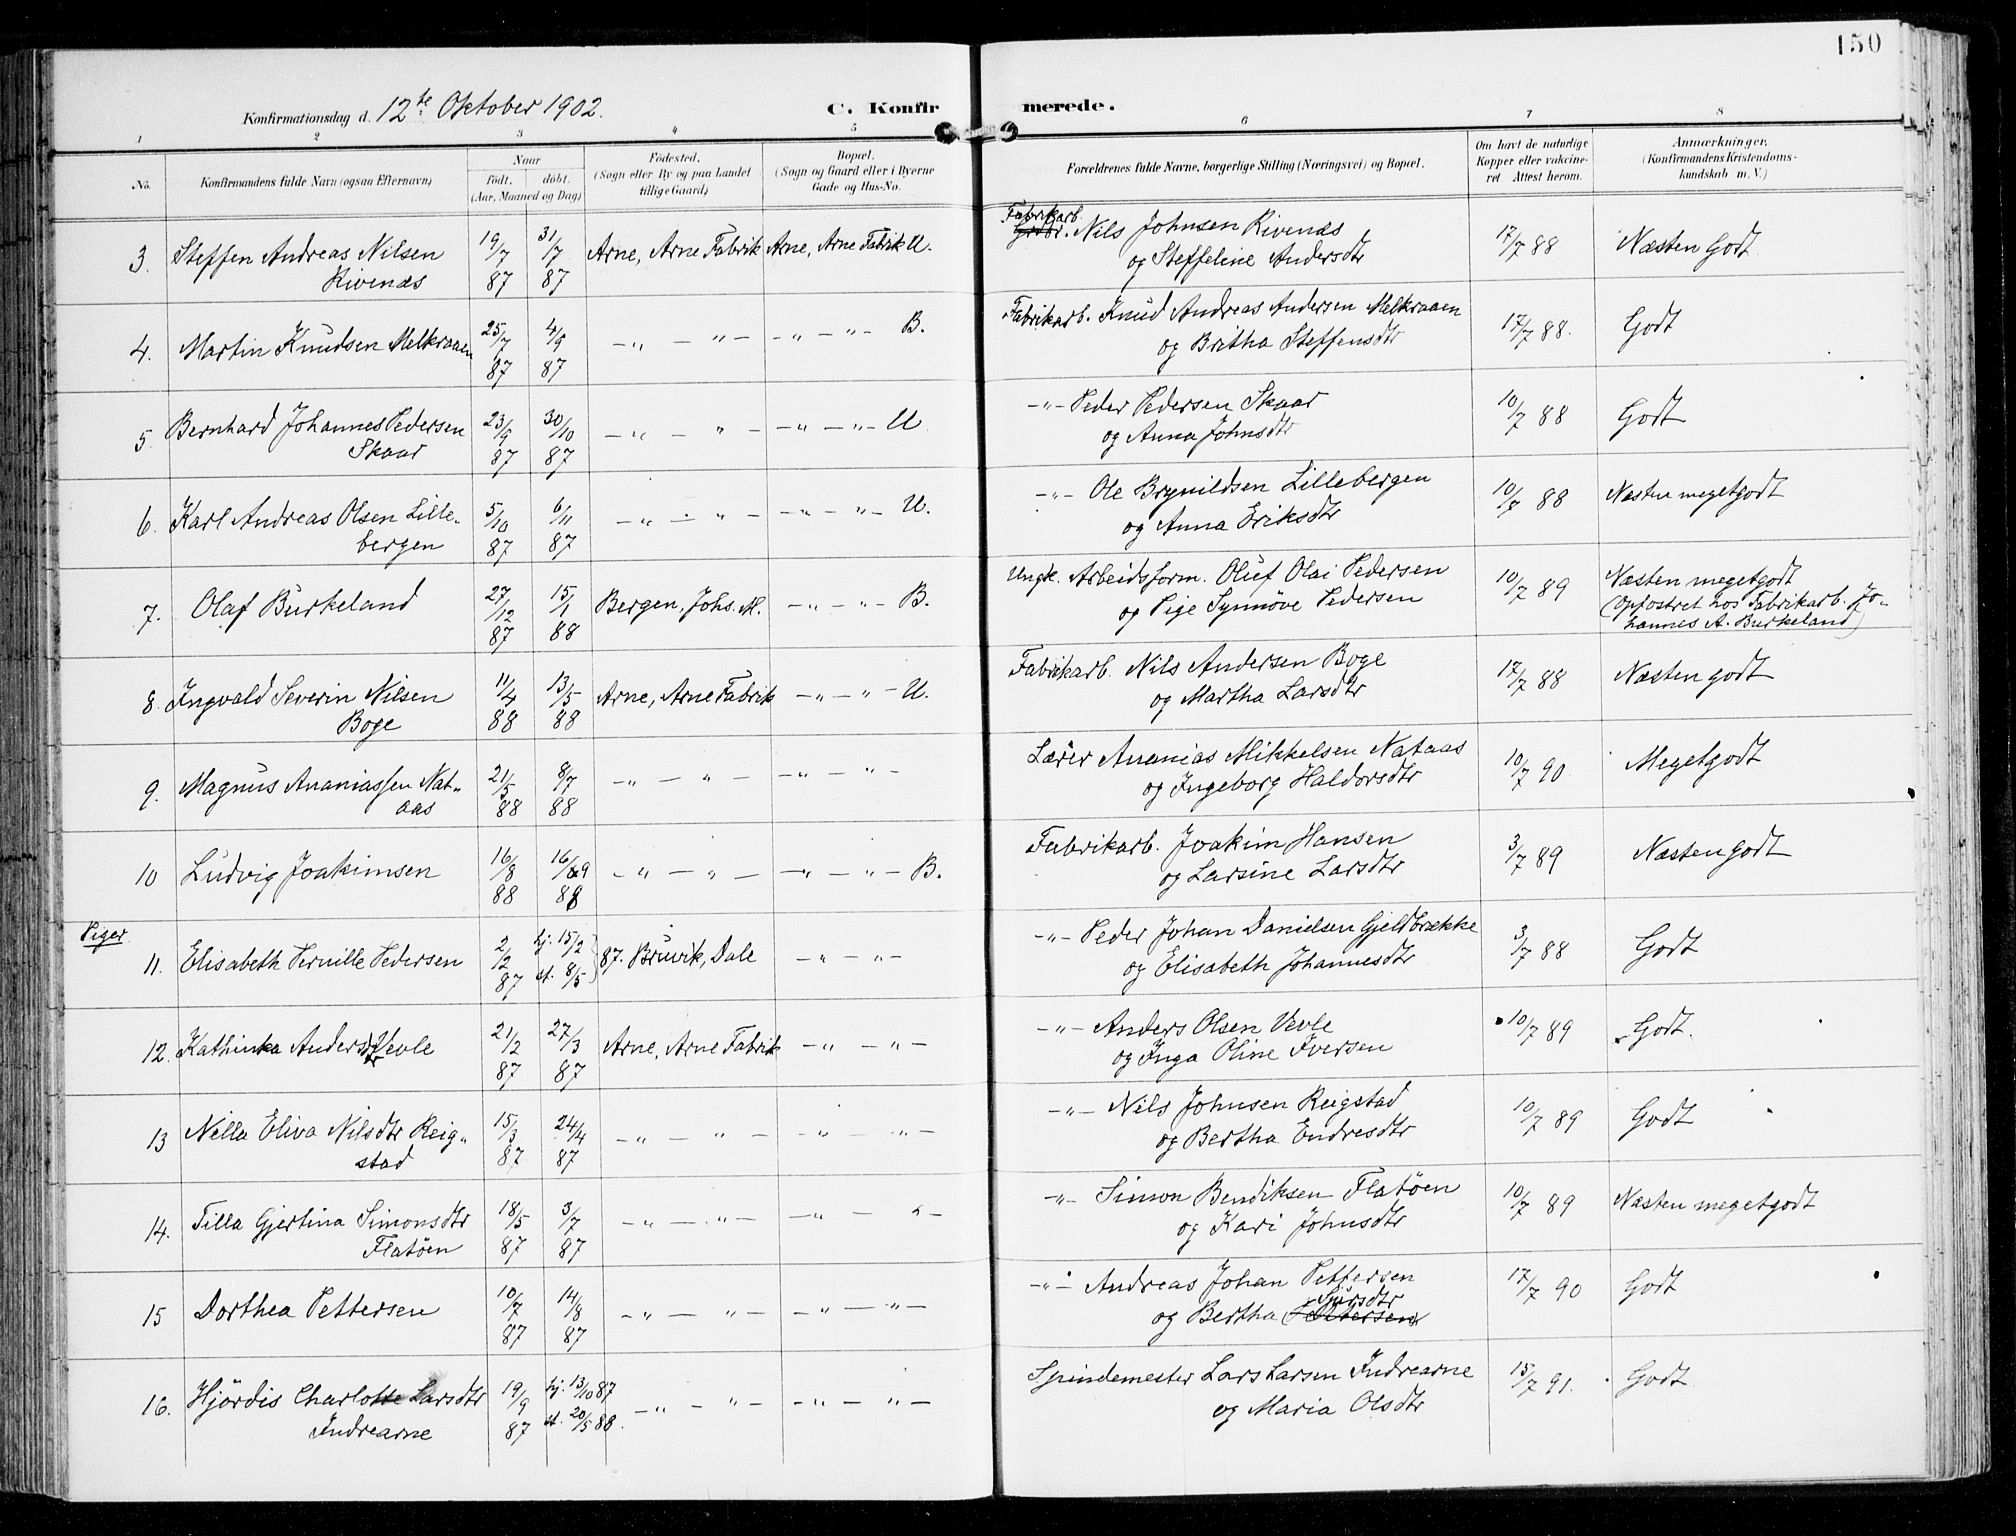 150
Konfirmationsdag d. 12te Oktober 1902. C. Konfirmerede.
1 2 3 4 5 6 7 8
No. Konfirmandens fulde Navn (ogsaa Efternavn) Naar födt. döbt. (Aar, Maaned og Dag) Födested. (Sogn eller By og paa Landet tillige Gaard) Bopæl. (Sogn og Gaard eller i Byerne Gade og Hus-No. Forældrenes fulde Navne, borgerlige Stilling (Næringsvei) og Bopæl. Om havt de naturlige Kopper eller vakcineret Attest herom. Anmærkninger. (Konfirmandens Kristendomskundskab m. V.)
3. Steffen Andreas Nilsen Rivenæs 19/7 87 31/7 87 Arne, Arne Fabrik Arne, Arne Fabrik U. Fabrikarb. Grdbr. Nils Johnsen Rivenæs og Steffeline Andersdtr 17/7 88 Næsten Godt
4. Martin Knudsen Melkraaen 25/7 87 4/9 87 -„- „- -„-„- B. Fabrikarb. Knud Andreas Andersen Melkraaen og Britha Steffensdtr 17/7 88. Godt
5. Bernhard Johannes Pedersen Skaar 23/9 87 30/10 87 -„- „- -„-„- U. -„- Peder Pedersen Skaar og Anna Johnsdtr 10/7 88 Godt
6. Karl Andreas Olsen Lillebergen 5/10 87 6/11 87 -„- „- -„-„- U. -„- Ole Brynildsen Lillebergen og Anna Eriksdtr 10/7 88 Næsten megetgodt
7. Olaf Burkeland 27/12 87 15/1 88 Bergen, Johs. M. -„-„- B. Ungk. Arbeidsform. Oluf Olai Pedersen og Pige Synnöve Pedersen 10/7 89 Næsten megetgodt (opfostret hos Fabrikarb. Johannes A. Burkeland)
8. Ingvald Severin Nilsen Boge 11/4 88 13/5 88 Arne, Arne Fabrik -„-„- U. Fabrikarb. Nils Andersen Boge og Martha Larsdtr 17/7 88 Næsten godt
9. Magnus Ananiassen Nataas 21/5 88 8/7 88 -„- „- -„-„- Lærer Ananias Mikkelsen Nataas og Ingeborg Haldorsdtr 10/7 90 Megetgodt
10 Ludvig Joakimsen 16/8 88 16/9 88 -„- „- -„-„- B. Fabrikarb. Joakim Hansen og Larsine Larsdtr 3/7 89 Næsten godt
Piger
11. Elisabeth Pernille Pedersen 2/2 87 hj. 15/2 st. 8/5 87. Bruvik, Dale -„-„- -„- Peder Johan Danielsen Gjeldbrække og Elisabeth Johannesdtr 3/7 88 Godt
12. Kathinka Andersdtr Vevle 21/2 87 27/3 87 Arne, Arne Fabrik -„-„- -„- Anders Olsen Vevle og Inga Oline Iversen 10/7 89 Godt.
13 Nilla Eliva Nilsdtr Reigstad 15/3 87 24/4 87 -„- „- -„-„- -„- Nils Johnsen Reigstad og Bertha Endresdtr 10/7 89 Godt
14. Tilla Gjertina Simonsdtr Flatöen 18/5 87 3/7 87 -„- „- -„-„- -„- Simon Bendiksen Flatöen og Kari Johnsdtr 10/7 89 Næsten megetgodt
15 Dorthea Pettersen 10/7 87 14/8 87 -„- „- -„-„- -„- Andreas Johan Pettersen og Bertha Sjursdtr 17/7 90 Godt
16. Hjördis Charlotte Larsdtr Indrearne 19/9 87 hj. 13/10 87 st. 20/5 88. -„- „- -„-„- Spindemester Lars Larsen Indrearne og Maria Olsdtr 15/7 91. Godt